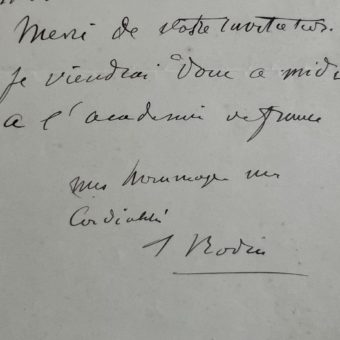 Merci de votre invitation.
Je viendrai donc a midi
a l'academie de france
mes hommages mes
Cordialités
A Rodin